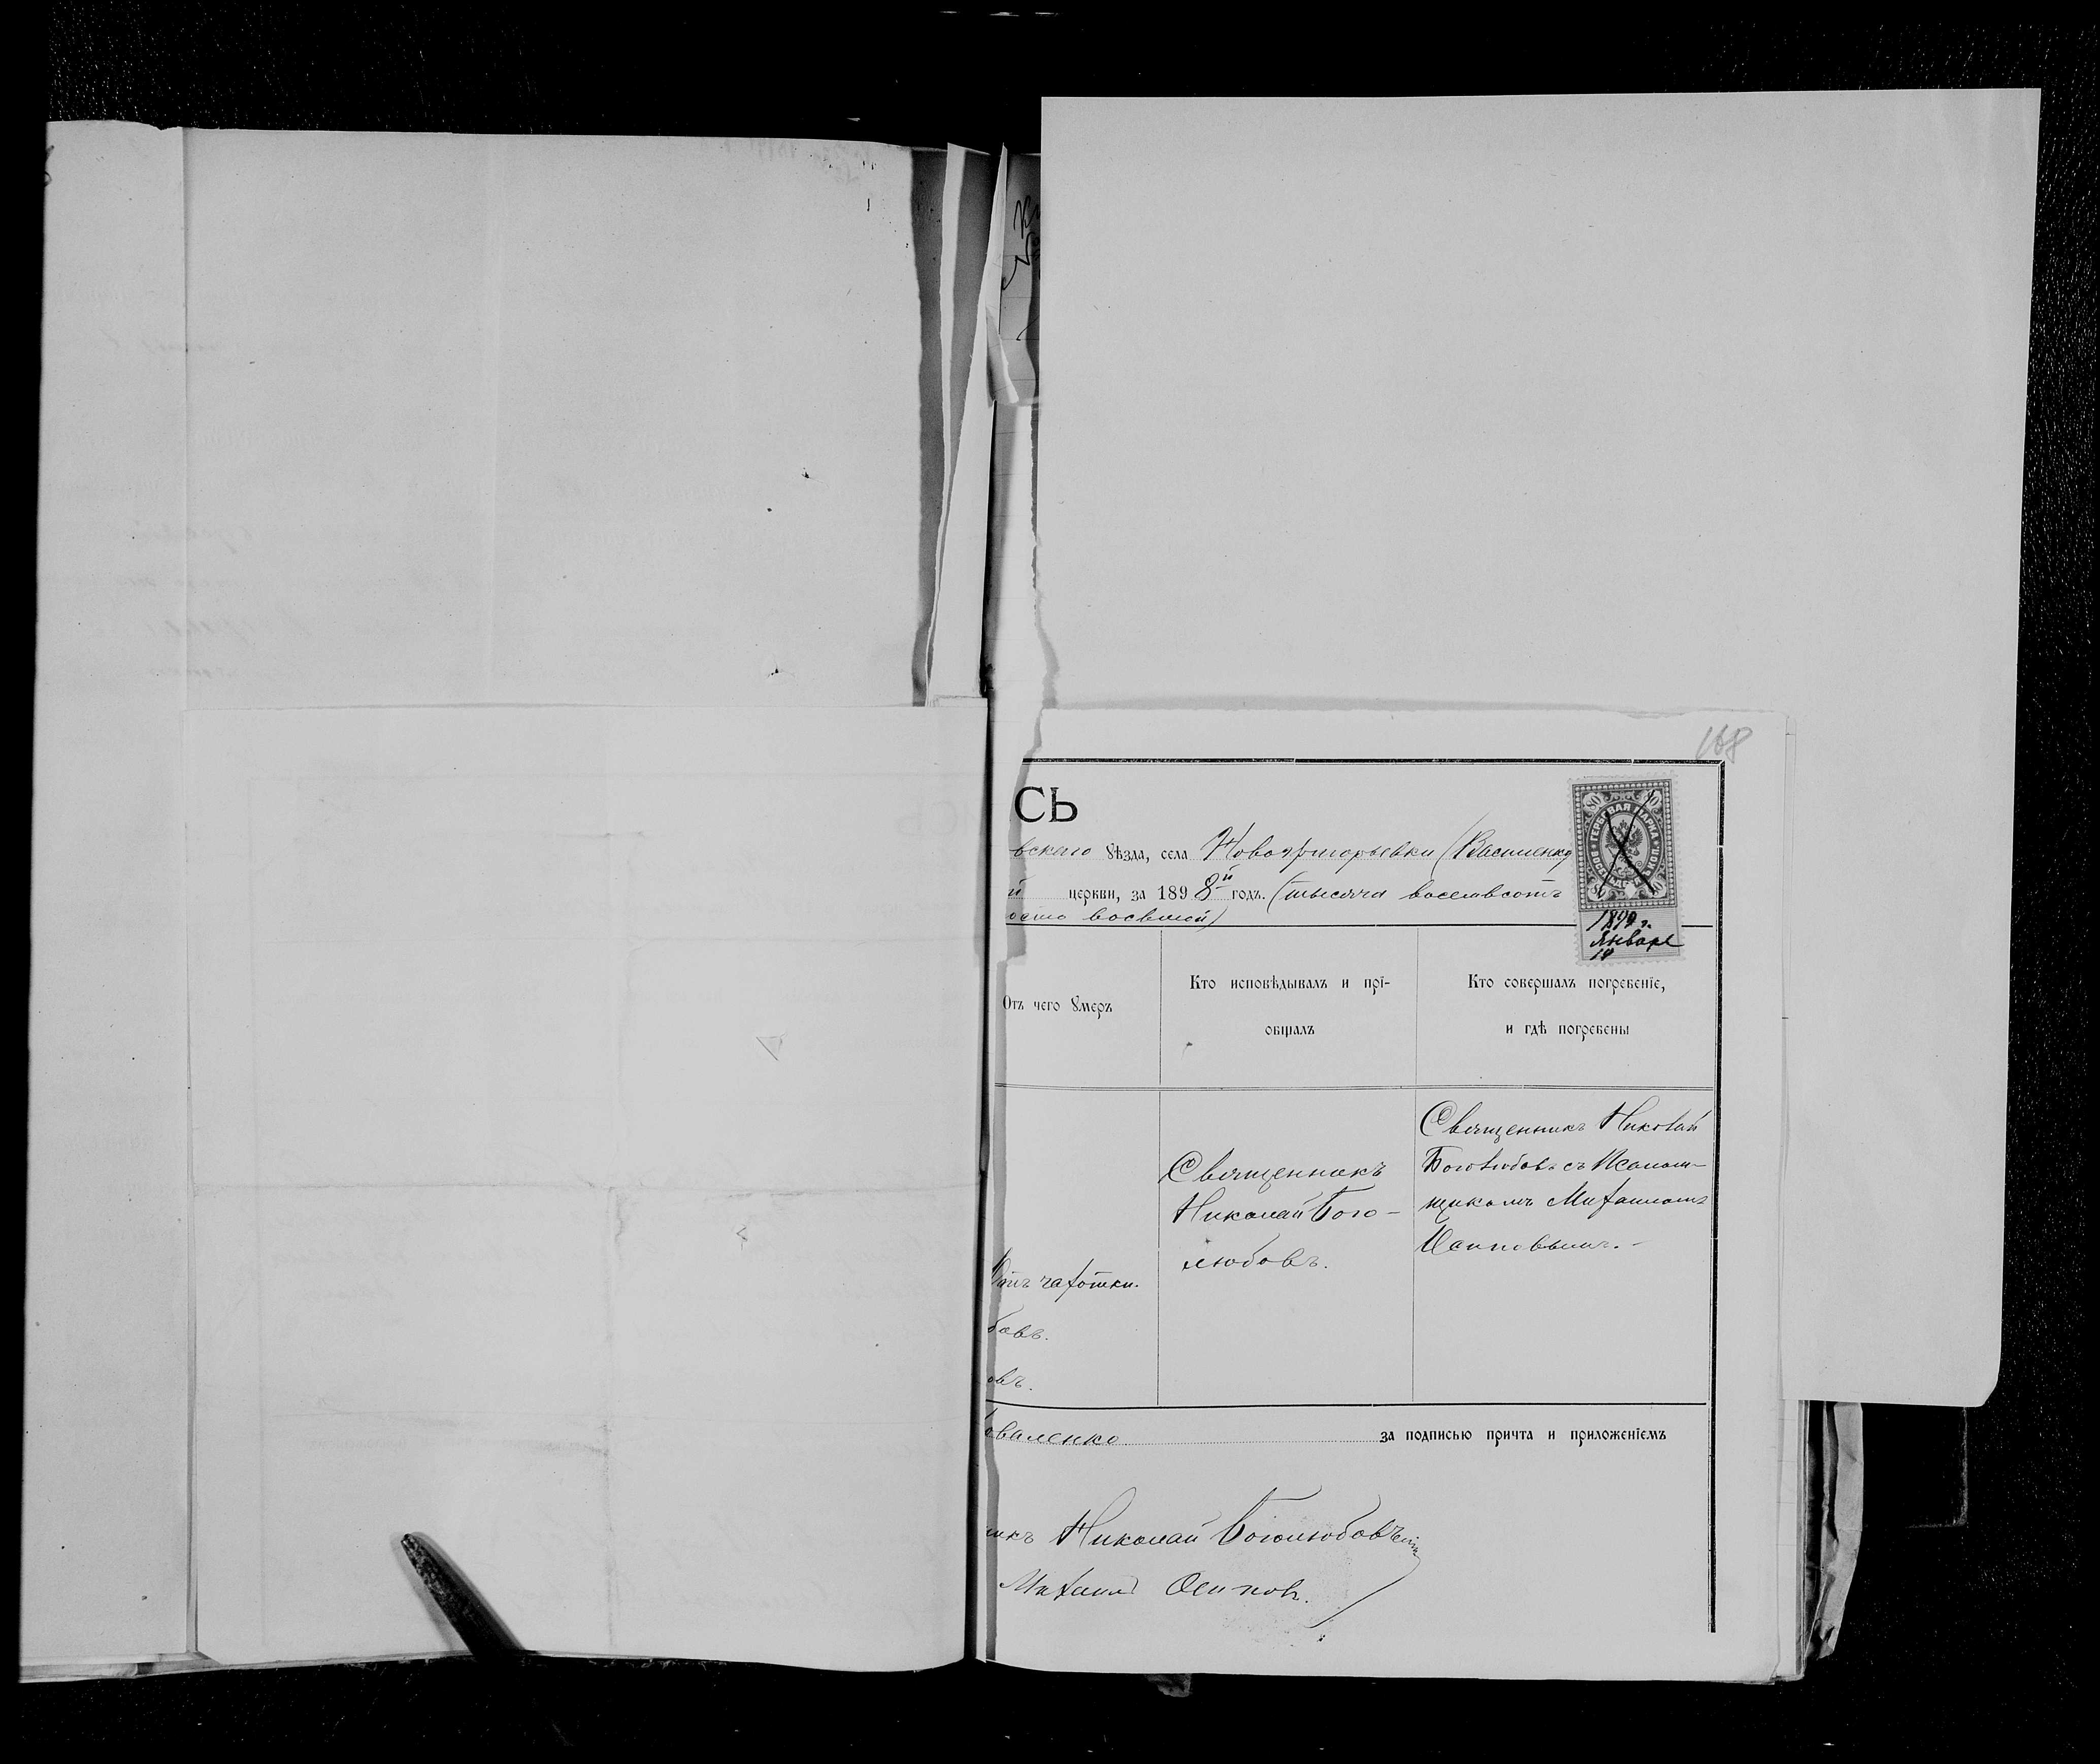 168
СЬ
вскаго ꙋѣзда, села Новогригорьевки (Василенко
й церкви, за 1898й годъ. (тысяча восемьсотъ
осто восьмой)
80 80
ГЕРБОВАЯ МАРКА
80 80
1899 г.
Января
Отъ чего ꙋмеръ
Кто исповѣдывалъ и прі-
общалъ
Кто совершалъ погребеніе,
и гдѣ погребены
Отъ чахотки.
бовъ.
овъ.
Священникъ
Николай Бого-
любовъ.
Священникъ Николай
Боголюбовъ съ Псалом-
щикомъ Михаиломъ
Осиповымъ.-
оваленко за подписью причта и приложеніемъ
икъ Николай Боголюбовъ
Михаилъ Осиповъ.